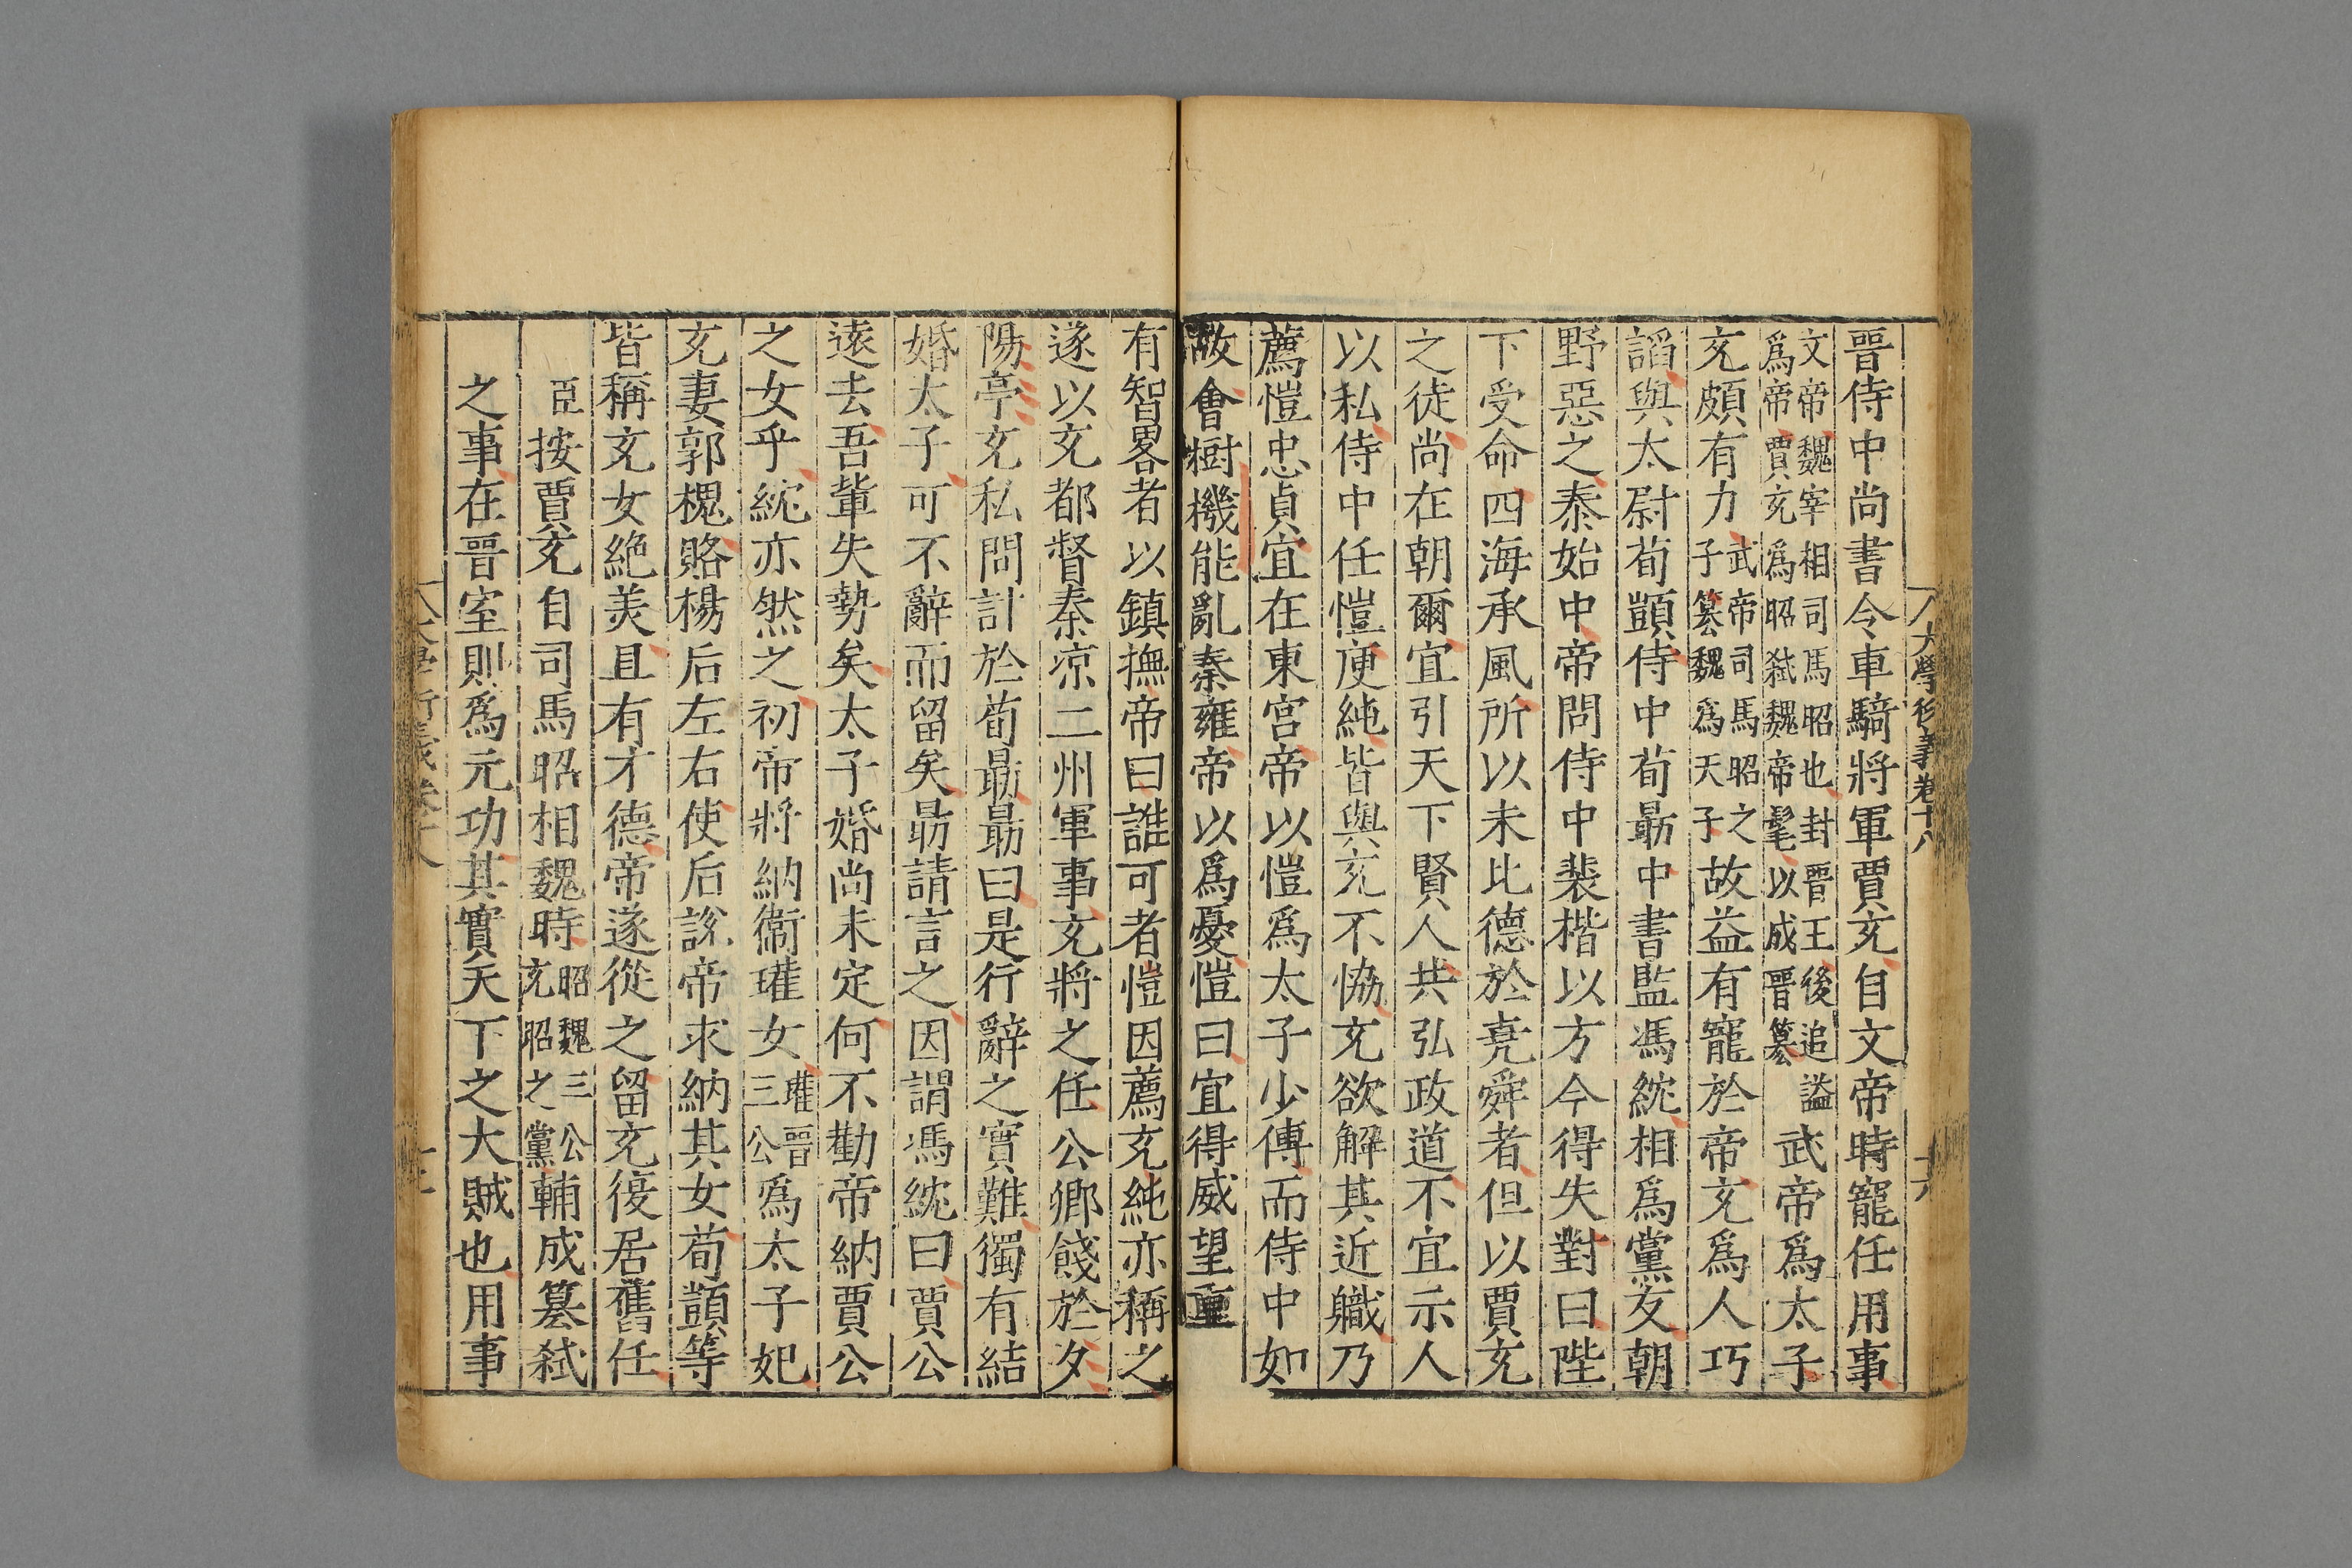 大學衍義卷十八
十六
晋侍中尚書令車騎將軍賈充自文帝時寵任用事
文帝魏宰相司馬昭也封晋王後追謚
爲帝賈充爲昭弑魏帝髦以成晋簒
武帝爲太子
充頗有力
武帝司馬昭之
子簒魏爲天子
故益有寵於帝充爲人巧
謟與太尉荀顗侍中荀勗中書監馮紞相爲黨友朝
野惡之泰始中帝問侍中裴楷以方今得失對曰陛
下受命四海承風所以未比德於堯舜者但以賈充
之徒尚在朝爾宜引天下賢人共弘政道不宜示人
以私侍中任愷庾純皆與充不恊充欲解其近職乃
薦愷忠貞宜在東宮帝以愷爲太子少傅而侍中如
故會樹機能亂秦雍帝以爲憂愷曰宜得威望重
有智畧者以鎮撫帝曰誰可者愷因薦充純亦稱之
遂以充都督秦凉二州軍事充將之任公卿餞於夕
陽亭充私問計於荀勗勗曰是行辭之實難獨有結
婚太子可不辭而留矣勗請言之因謂馮紞曰賈公
遠去吾輩失勢矣太子婚尚未定何不勸帝納賈公
之女乎紞亦然之初帝將納衞瓘女
瓘晋
三公
爲太子妃
充妻郭槐賂楊后左右使后說帝求納其女荀顗等
皆稱充女絶美且有才德帝遂從之留充復居舊任
臣按賈充自司馬昭相魏時
昭魏三公
充昭之黨
輔成簒弑
之事在晋室則爲元功其實天下之大賊也用事
大學衍義卷十八